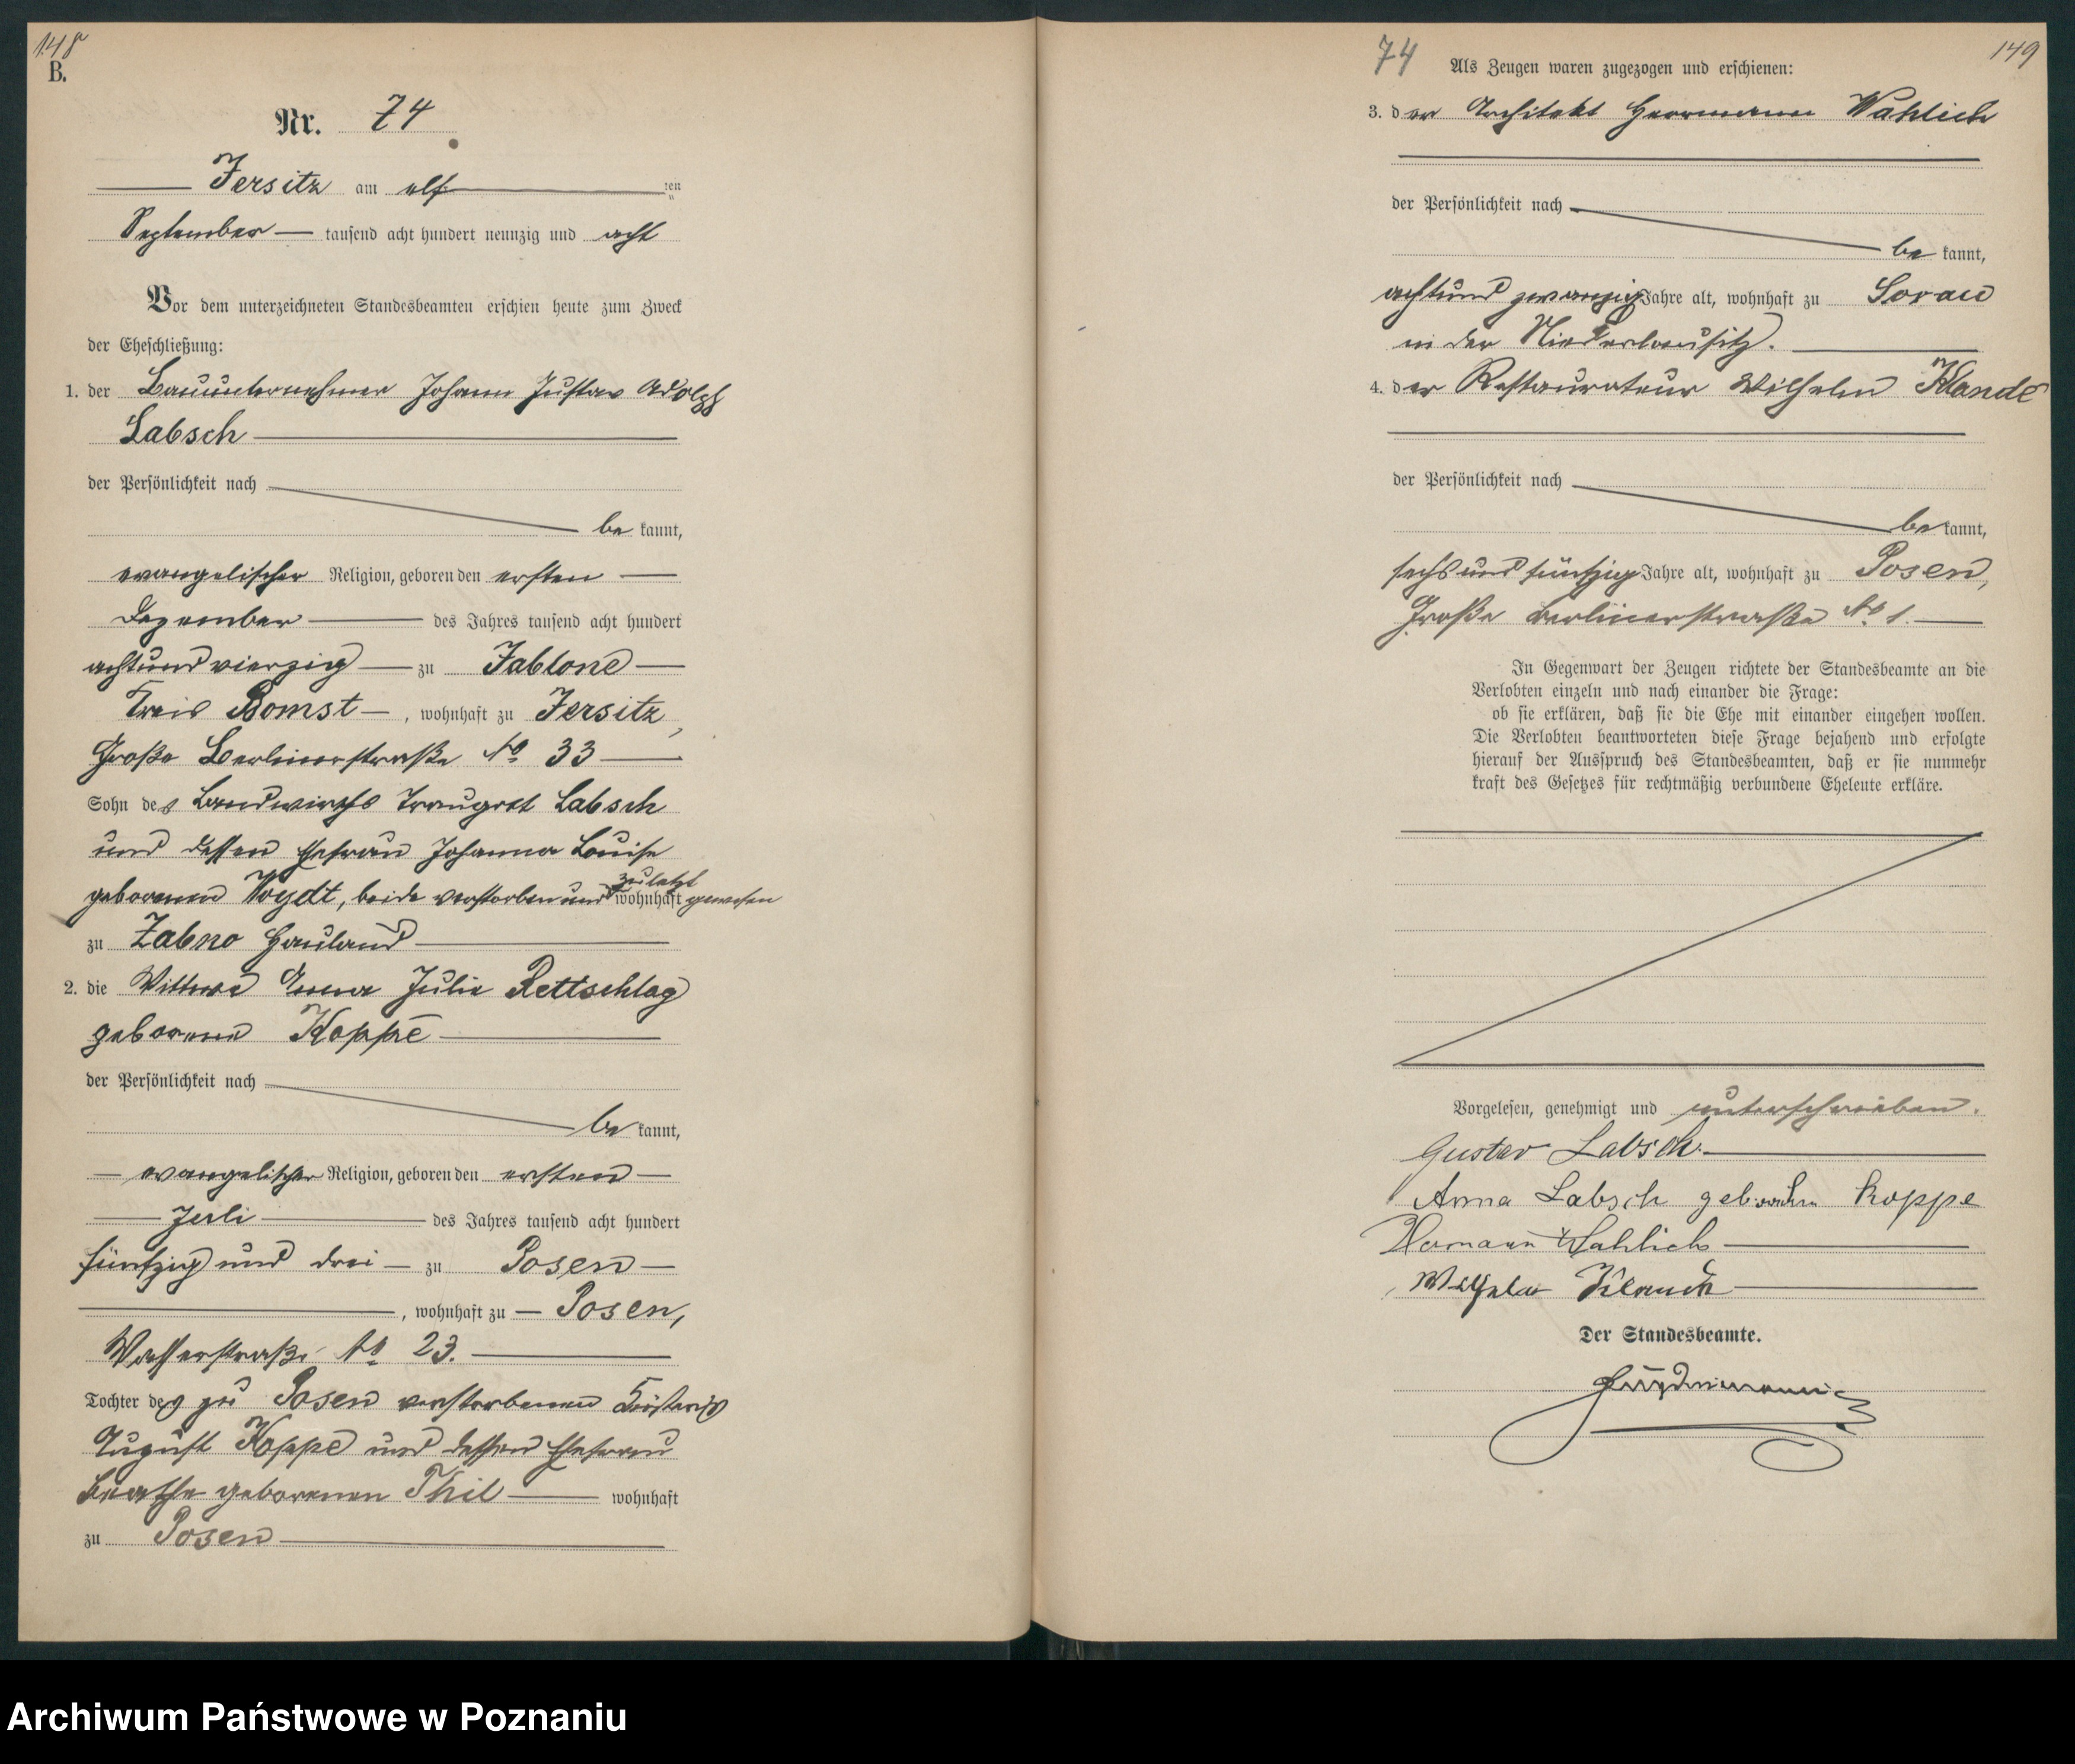 148
B.
Nr. 74
Jersitz am elf ten
September tausend acht hundert neunzig und acht
Vor dem unterzeichneten Standesbeamten erschien heute zum Zweck
der Eheschließung:
1. der Bauunternehmer Johann Gustav Adolph
Labsch
der Persönlichkeit nach
be kannt,
evangelischer Religion, geboren den ersten
Dezember des Jahres tausend acht hundert
achtund vierzig zu Jablone
Kreis Bomst, wohnhaft zu Jersitz,
Große Berlinerstraße No 33
Sohn des Landwirths Traugott Labsch
und dessen Ehefrau Johanna Louise
geborenen Voydt, beide verstorben und zuletzt wohnhaft gewesen
zu Zabno Hauland
2. die Wittwe Anna Julie Rettschlag
geborene Koppe
der Persönlichkeit nach
be kannt,
evangelischer Religion, geboren den ersten
Juli des Jahres tausend acht hundert
fünfzig und drei zu Posen
, wohnhaft zu Posen,
Wasserstraße No 23.
Tochter des zu Posen verstorbenen
August Koppe und dessen Ehefrau
Beathe geborenen Thil wohnhaft
zu Posen
74
149
Als Zeugen waren zugezogen und erschienen:
3. der Architekt Herrmann Wahlich
der Persönlichkeit nach
be kannt,
achtund zwanzig Jahre alt, wohnhaft zu Sorau
in der Niederlausitz.
4. der Restaurateur Wilhelm Klande
der Persönlichkeit nach
be kannt,
sechs und fünfzig Jahre alt, wohnhaft zu Posen,
Große Berlinerstraße No 1.
In Gegenwart der Zeugen richtete der Standesbeamte an die
Verlobten einzeln und nach einander die Frage:
ob sie erklären, daß sie die Ehe mit einander eingehen wollen.
Die Verlobten beantworteten diese Frage bejahend und erfolgte
hierauf der Ausspruch des Standesbeamten, daß er sie nunmehr
kraft des Gesetzes für rechtmäßig verbundene Eheleute erkläre.
Vorgelesen, genehmigt und unterschrieben.
Gustav Labsch.
Anna Labsch geborene Koppe
Hermann Wahlich
Wilhelm
Der Standesbeamte.
Archiwum Państwowe w Poznaniu